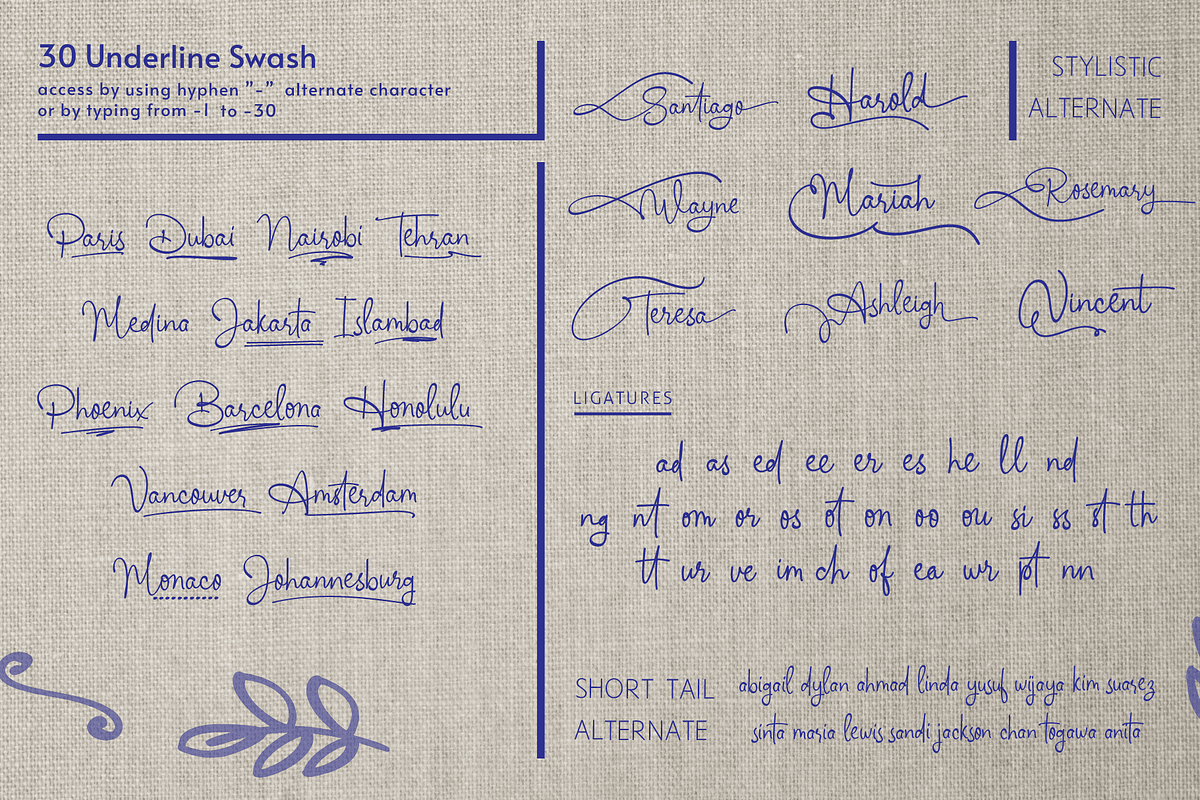 30 Underline Swash
access by using hyphen "-" alternate character
or by typing from -1 to -30
Paris Dubai Nairobi Tehran
Medina Jakarta Islambad
Phoenix Barcelona Honolulu
Vancouver Amsterdam
Monaco Johannesburg
STYLISTIC
ALTERNATE
Santiago Harold
Wayne Mariah Rosemary
Teresa Ashleigh Vincent
LIGATURES
ad as ed ee er es he ll nd
ng nt om or os ot on oo ou si ss st th
tt ur ve im ch of ea wr pt nn
SHORT TAIL
ALTERNATE
abigail dylan ahmad linda yusuf wijaya kim suarez
sinta maria lewis sandi jackson chan togawa anita